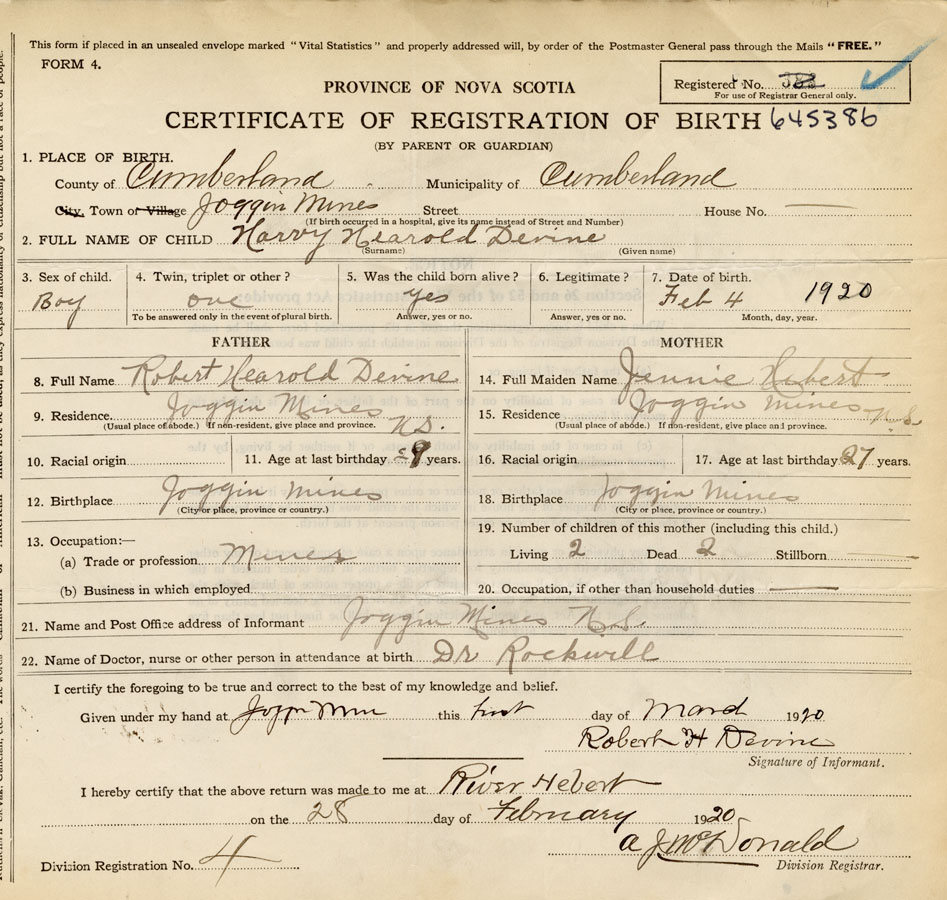 This form if placed in an unsealed envelope marked "Vital Statistics" and properly addressed will, by order of the Postmaster General pass through the Mails "FREE."
FORM 4.
Registered No.
For use of Registrar General only.
PROVINCE OF NOVA SCOTIA
CERTIFICATE OF REGISTRATION OF BIRTH 645386
(BY PARENT OR GUARDIAN)
1. PLACE OF BIRTH.
County of Cumberland Municipality of Cumberland
City, Town or Village Joggin Mines Street House No. —
(If birth occurred in a hospital, give its name instead of Street and Number)
2. FULL NAME OF CHILD Harvy Hearold Devine
(Surname) (Given name)
3. Sex of child. 4. Twin, triplet or other? 5. Was the child born alive? 6. Legitimate? 7. Date of birth.
Boy one yes Feb 4 1920
To be answered only in the event of plural birth. Answer, yes or no. Answer, yes or no. Month, day, year.
FATHER MOTHER
8. Full Name Robert Hearold Devine 14. Full Maiden Name Jennie Hebert
9. Residence. Joggin Mines N.S. 15. Residence Joggin Mines N.S.
(Usual place of abode.) If non-resident, give place and province. (Usual place of abode.) If non-resident, give place and province.
10. Racial origin 11. Age at last birthday years. 16. Racial origin 17. Age at last birthday 27 years.
12. Birthplace Joggin Mines 18. Birthplace Joggin Mines
(City or place, province or country.) (City or place, province or country.)
19. Number of children of this mother (including this child.)
13. Occupation:—
(a) Trade or profession Miner Living 2 Dead 2 Stillborn —
(b) Business in which employed 20. Occupation, if other than household duties —
21. Name and Post Office address of Informant Joggin Mines N.S.
22. Name of Doctor, nurse or other person in attendance at birth Dr Rockwell
I certify the foregoing to be true and correct to the best of my knowledge and belief.
Given under my hand at this first day of 1920
Robert H Devine
Signature of Informant.
I hereby certify that the above return was made to me at River Hebert
on the 28 day of February 1920
A J McDonald
Division Registration No. 4 Division Registrar.